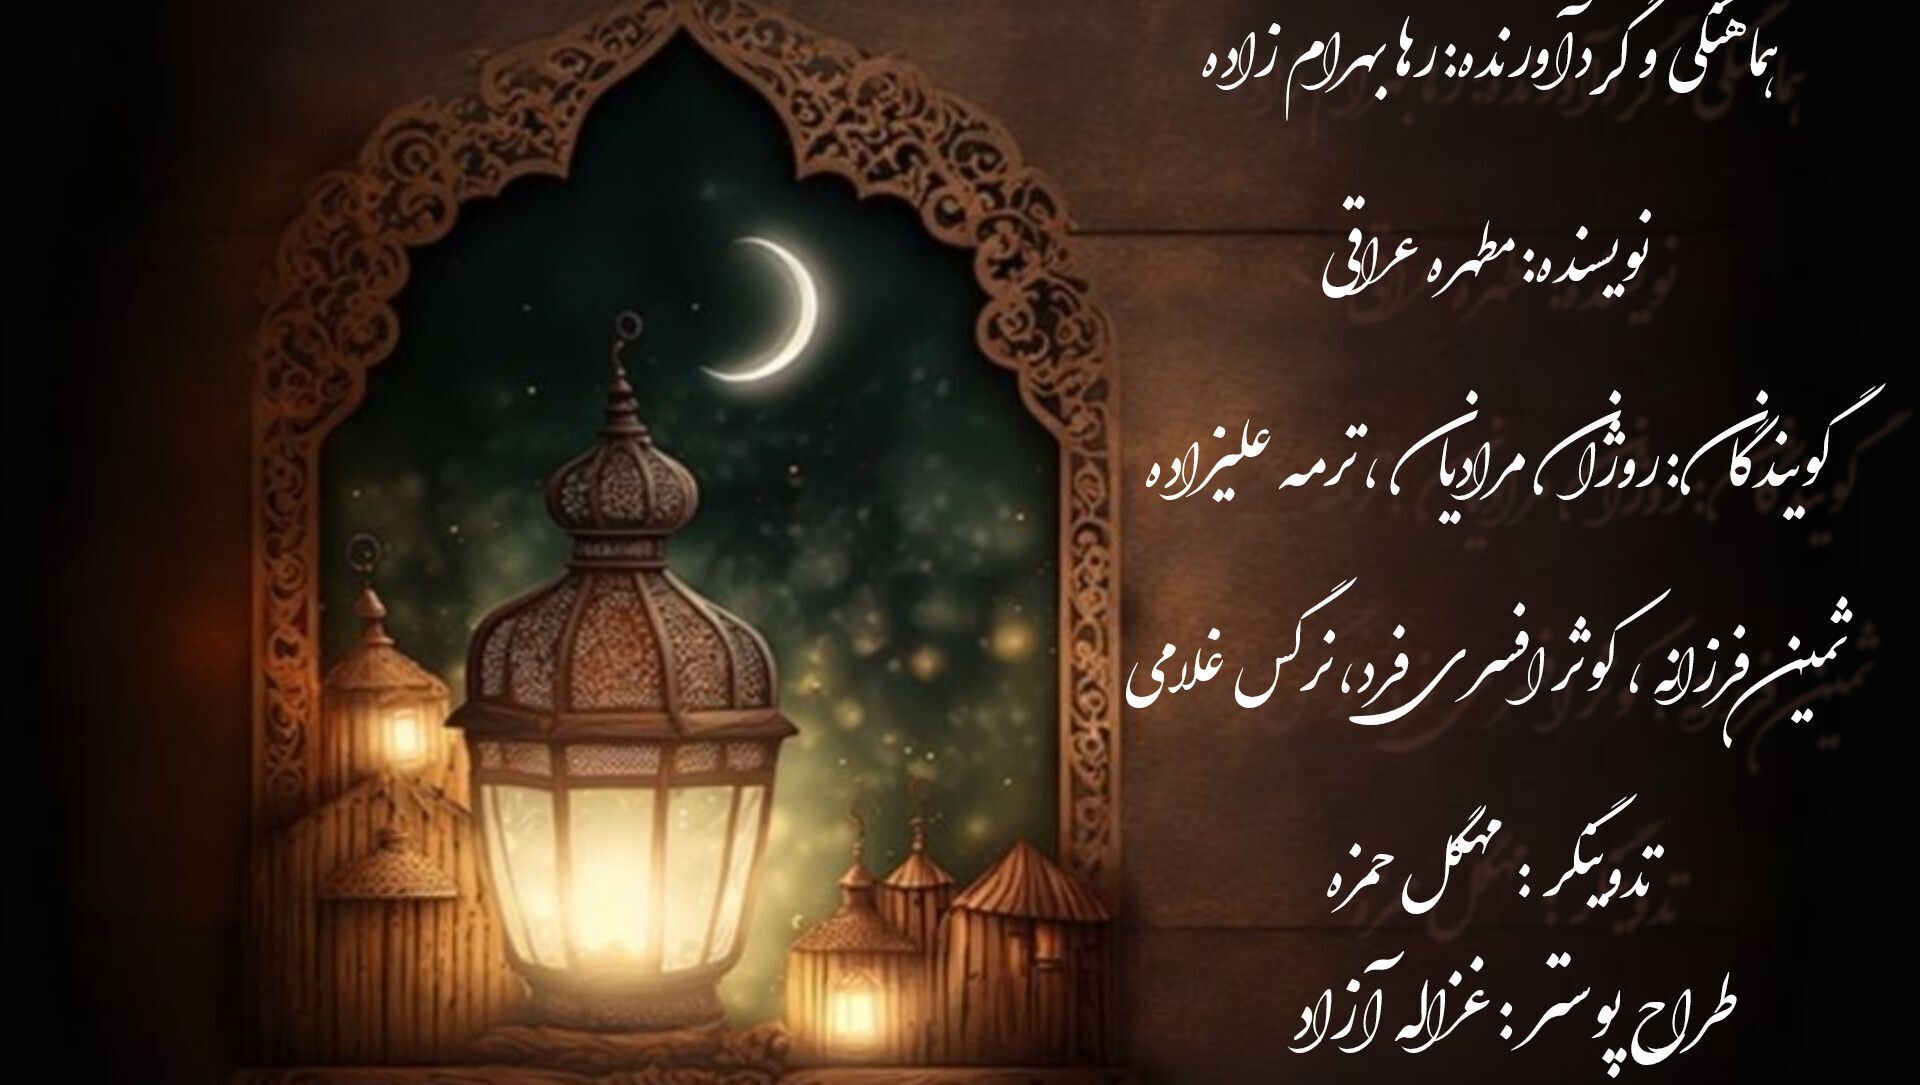 هماهنگی و گردآورنده: رها بهرام زاده
نویسنده: مطهره عراقی
گویندگان: روژان مرادیان ، ترمه علیزاده
ثمین فرزانه ، کوثر افسری فرد، نرگس غلامی
تدوینگر : مهگل حمزه
طراح پوستر : غزاله آزاد